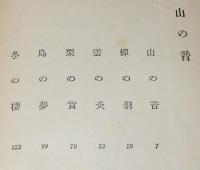 山の音
山の音 7
蟬の羽 29
雲の炎 53
栗の實 70
島の夢 99
冬の櫻 123